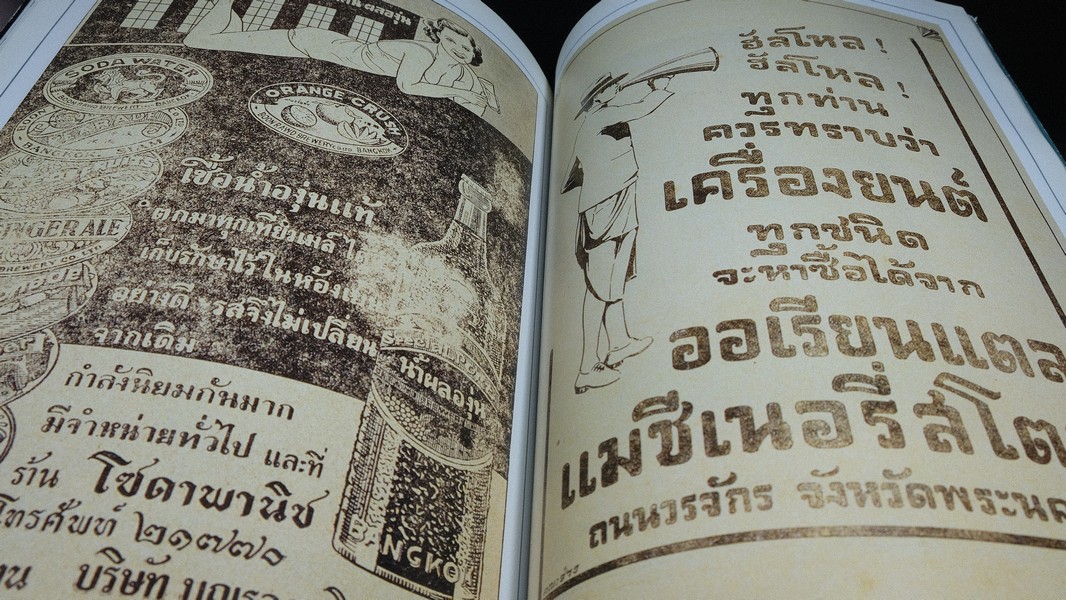 SODA WATER
ORANGE CRUSH
BOON RAWD BREWERY, BANGKOK
GINGER ALE
เชื้อน้ำองุ่นแท้
ตกมาทุกเที่ยวเมล์
เก็บรักษาไว้ในห้องเย็น
อย่างดี รสจึงไม่เปลี่ยน
จากเดิม
น้ำผลองุ่น
BANGKOK
กำลังนิยมกันมาก
มีจำหน่ายทั่วไป และที่
ร้าน โซดาพานิช
โทรศัพท์ ๒๑๗๗๐
บริษัท บุญรอด
ฮัลโหล !
ฮัลโหล !
ทุกท่าน
ควรทราบว่า
เครื่องยนต์
ทุกชนิด
จะหาซื้อได้จาก
ออเรียนแตล
แมชีเนอรี่สโต
ถนนวรจักร จังหวัดพระนค